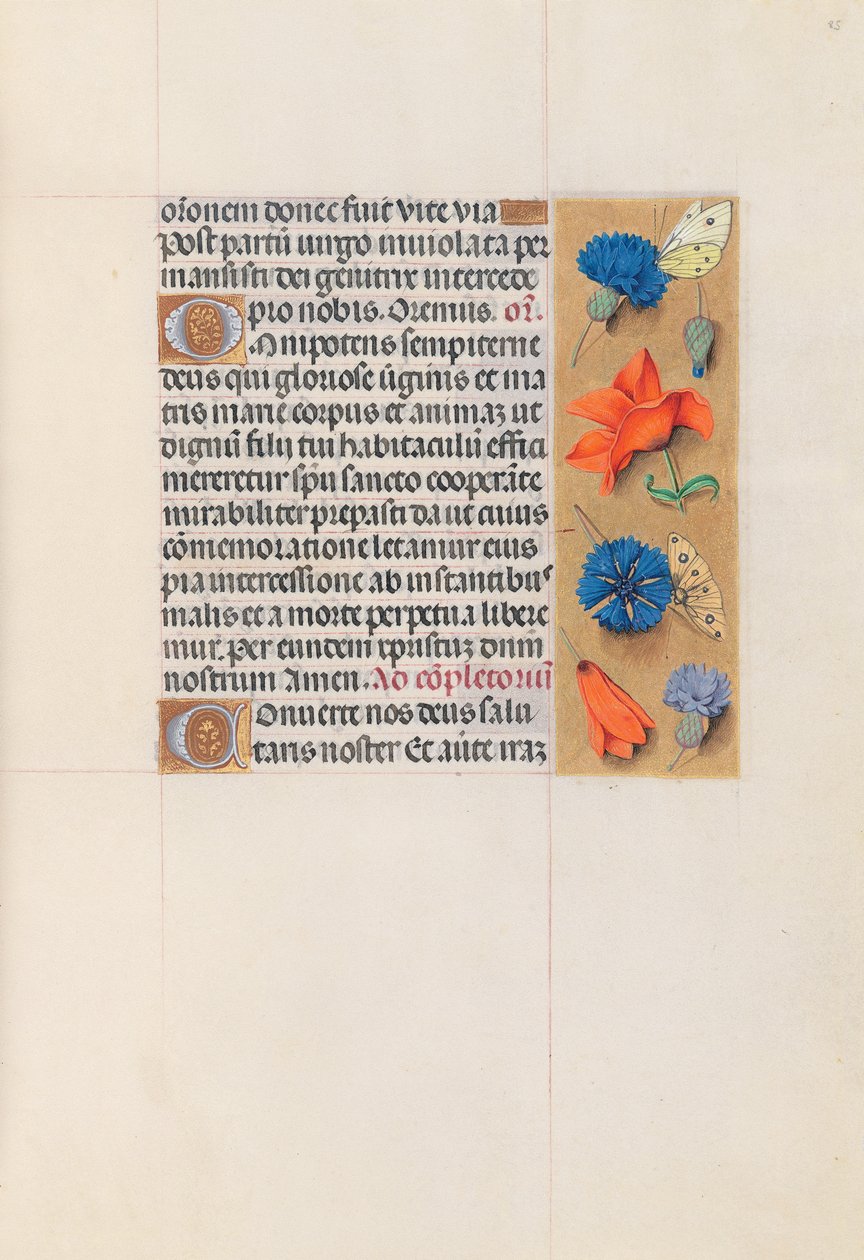 85
or̄onem donec fuit vite via
Post partū uirgo inuiolata per
mansisti dei genitrix intercede
pro nobis. Oremus. or̄.
Omnipotens sempiterne
deus qui gloriose ūginis et ma
tris marie corpus et animaz ut
dignū filij tui habitaculū effici
mereretur sp̄u sancto cooperāte
mirabiliter preparasti da ut cuius
cōmemoratione letamur eius
pia intercessione ab instantibus
malis et a morte perpetua libere
mur. Per eundem xpristuz dnm̄
nostrum Amen. Ad cōpletoriū
Conuerte nos deus salu
taris noster Et aūte iraz